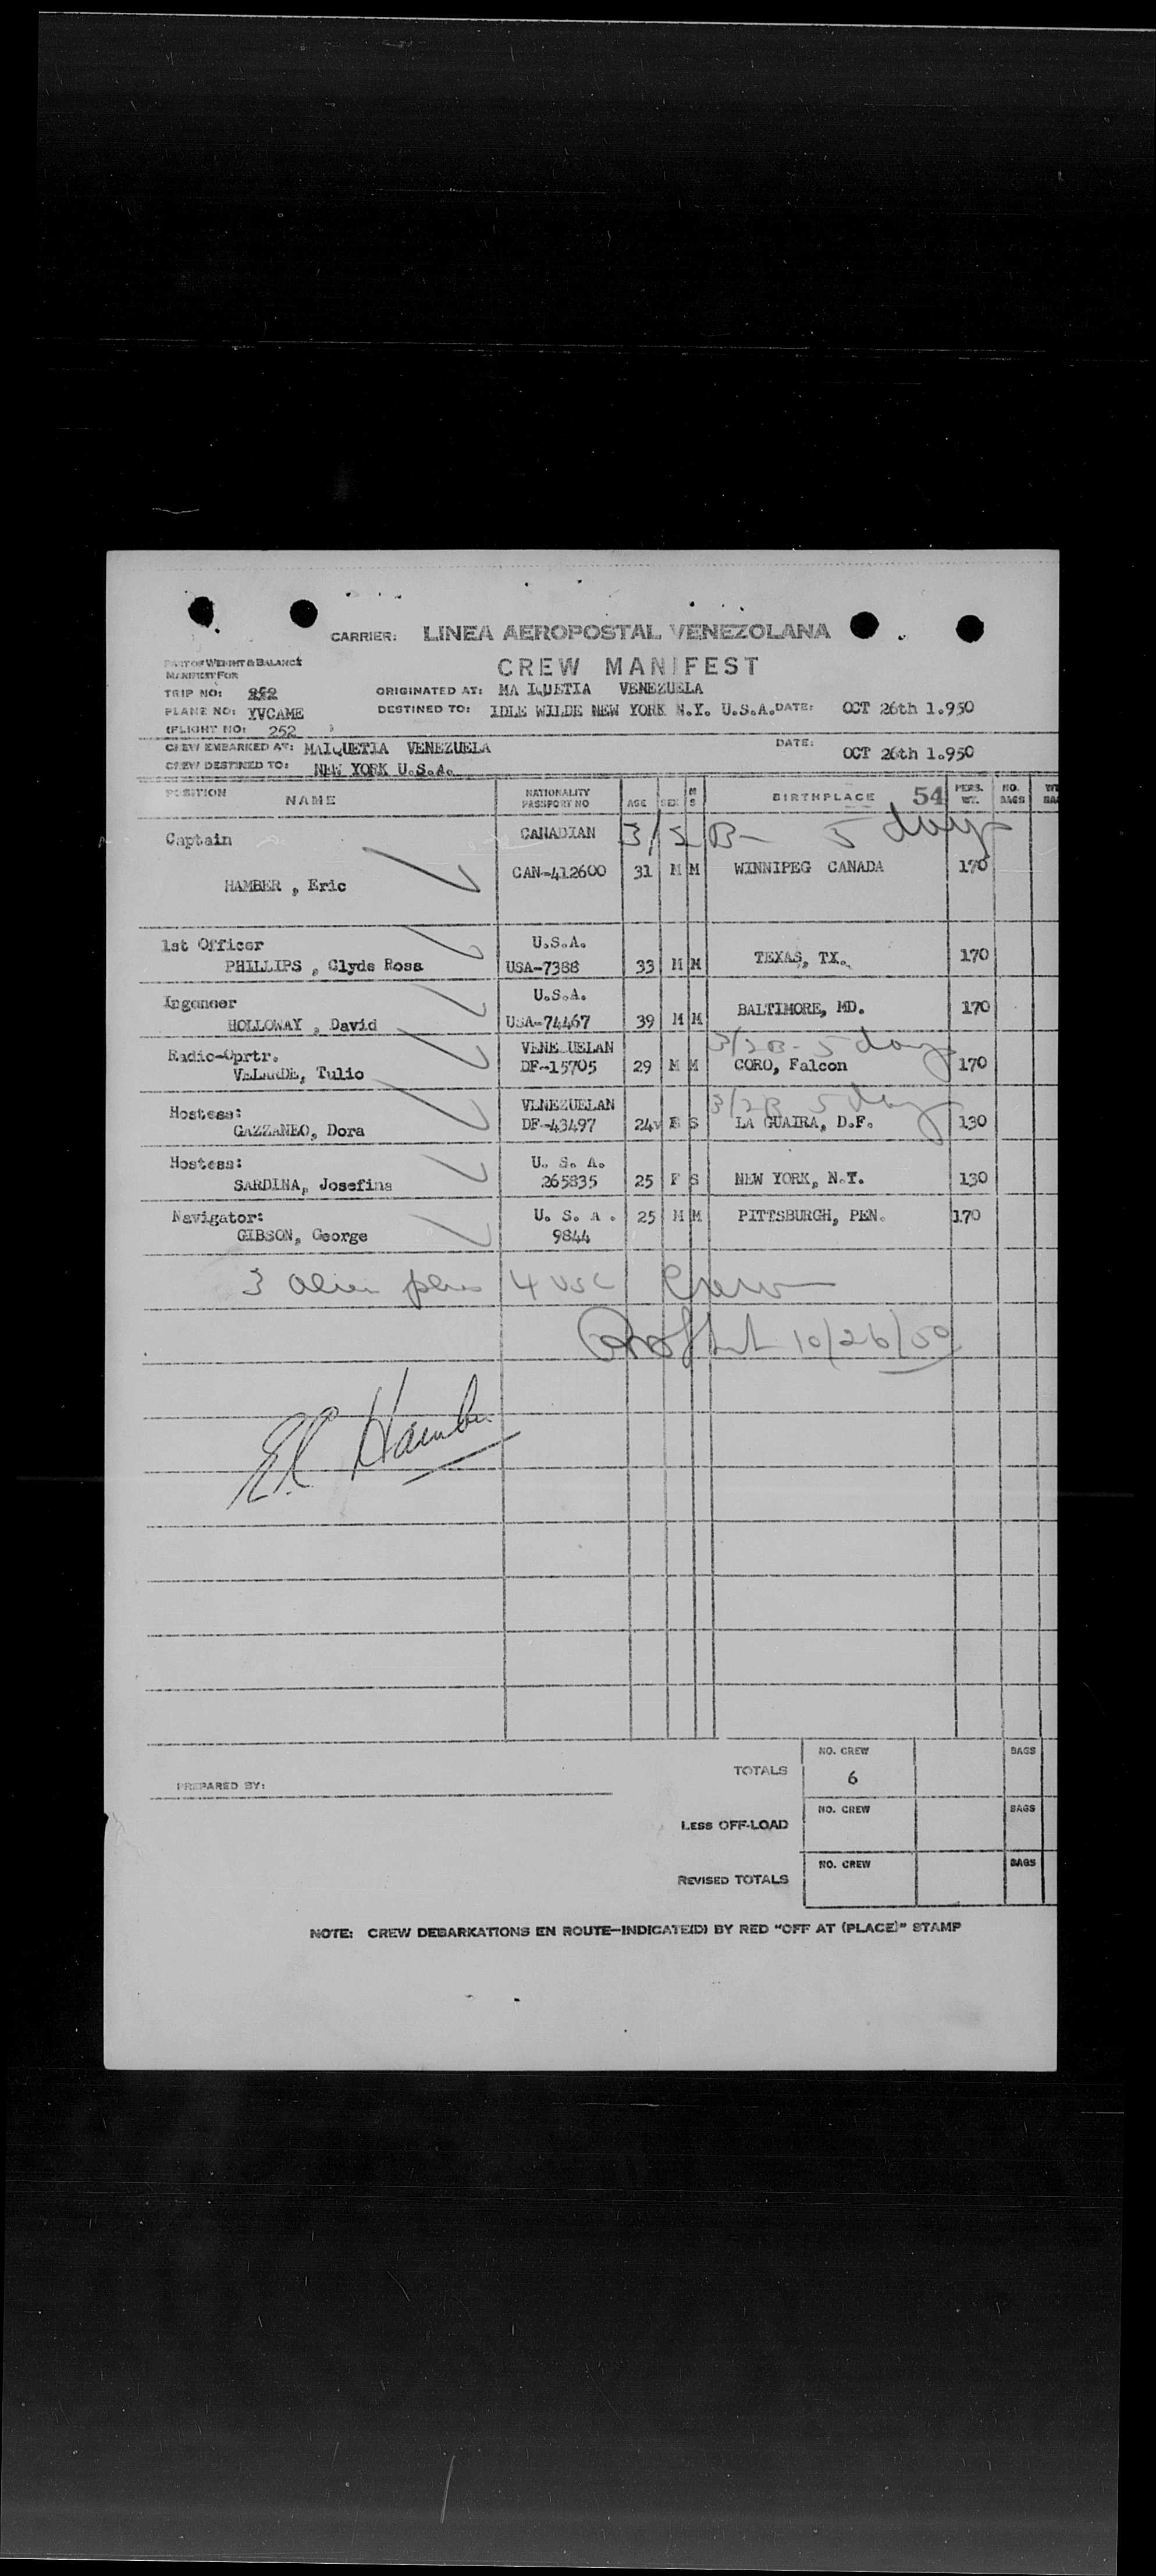 CARRIER: LINEA AEROPOSTAL VENEZOLANA
PART OF WEIGHT & BALANCE
MANIFEST FOR
CREW MANIFEST
TRIP NO: 252 ORIGINATED AT: MA IQUETIA VENEZUELA
PLANE NO: YVCAME DESTINED TO: IDLE WILDE NEW YORK N.Y. U.S.A. DATE: OCT 26th 1.950
(FLIGHT NO: 252 )
CREW EMBARKED AT: MAIQUETIA VENEZUELA DATE: OCT 26th 1.950
CREW DESTINED TO: NEW YORK U.S.A.
POSITION NAME NATIONALITY PASSPORT NO AGE SEX M S BIRTHPLACE 54 PERS. WT. NO. BAGS WT BA
Captain CANADIAN 3/2 B- 5 days
HAMBER , Eric CAN-412600 31 M M WINNIPEG CANADA 170
1st Officer U.S.A.
PHILLIPS , Clyde Ross USA-7388 33 M M TEXAS, TX. 170
Ingeneer U.S.A.
HOLLOWAY , David USA-74467 39 M M BALTIMORE, MD. 170
Radio-Oprtr. VENEZUELAN 3/2B- 5 days
VELARDE, Tulio DF-15705 29 M M CORO, Falcon 170
Hostess: VENEZUELAN 3/2B 5 days
GAZZANEO, Dora DF-43497 24 F S LA GUAIRA, D.F. 130
Hostess: U. S. A.
SARDINA, Josefina 265835 25 F S NEW YORK, N.Y. 130
Navigator: U. S. A. 25 M M PITTSBURGH, PEN. 170
GIBSON, George 9844
3 alien plus 4 USC Crew
10/26/50
E.R. Hamber
TOTALS NO. CREW 6 BAGS
PREPARED BY:
LESS OFF-LOAD NO. CREW BAGS
REVISED TOTALS NO. CREW BAGS
NOTE: CREW DEBARKATIONS EN ROUTE—INDICATE(D) BY RED "OFF AT (PLACE)" STAMP